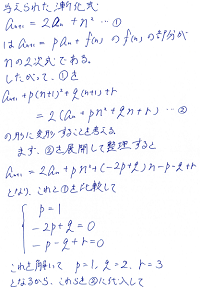 与えられた漸化式
aₙ₊₁ = 2aₙ + n² …①
は aₙ₊₁ = p aₙ + f(n) の f(n) の部分が
nの2次式である。
したがって、①を
aₙ₊₁ + p(n+1)² + q(n+1) + r
= 2(aₙ + pn² + qn + r) …②
の形に変形することを考える。
まず、②を展開して整理すると
aₙ₊₁ = 2aₙ + pn² + (-2p+q)n - p - q + r
となり、これと①を比較して
p = 1
-2p + q = 0
-p - q + r = 0
これを解いて p = 1, q = 2, r = 3
となるから、これらを②に代入して